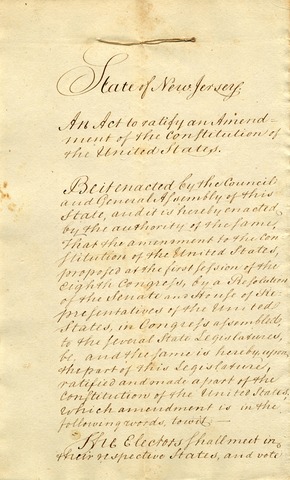 State of New Jersey,
An Act to ratify an Amend-
ment of the Constitution of
the United States.
Be it enacted by the Council
and General Assembly of this
State, and it is hereby enacted
by the authority of the same,
That the amenment to the Con
stitution of the United States,
proposed at the first session of the
Eighth Congress, by a Resolution
of the Senate and House of Re
presentatives of the United
States, in Congress assembled,
to the several State Legislatures,
be, and the same is hereby, upon
the part of this Legislature,
ratified and made a part of the
Constitution of the United States,
which amendment is in the
following words, to wit—
The Electors shall meet in
their respective States, and vote